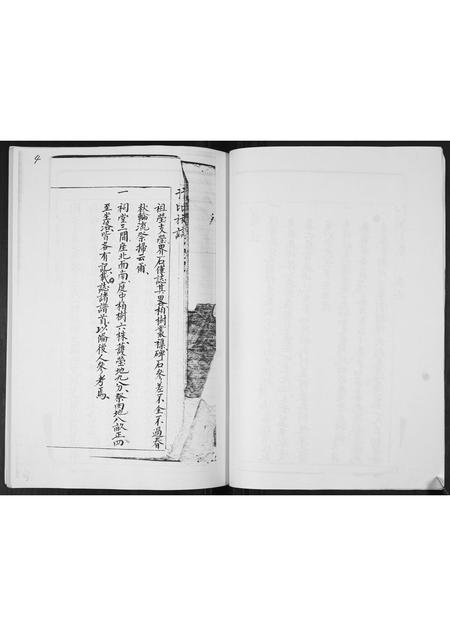 4
祖塋支塋界石僅誌其畧柏樹叢讓碑石參差不全不過春
秋輪流祭掃云爾
一 祠堂三間座北面南庭中柏樹六株護塋地九分祭田地八畝正四
至坐落皆各有記載誌諸譜首以倫後人參考焉